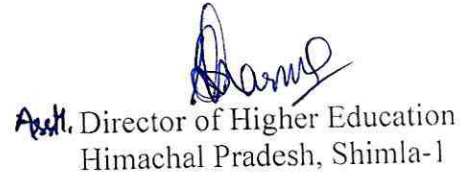 Asstt. Director of Higher Education
Himachal Pradesh, Shimla-1